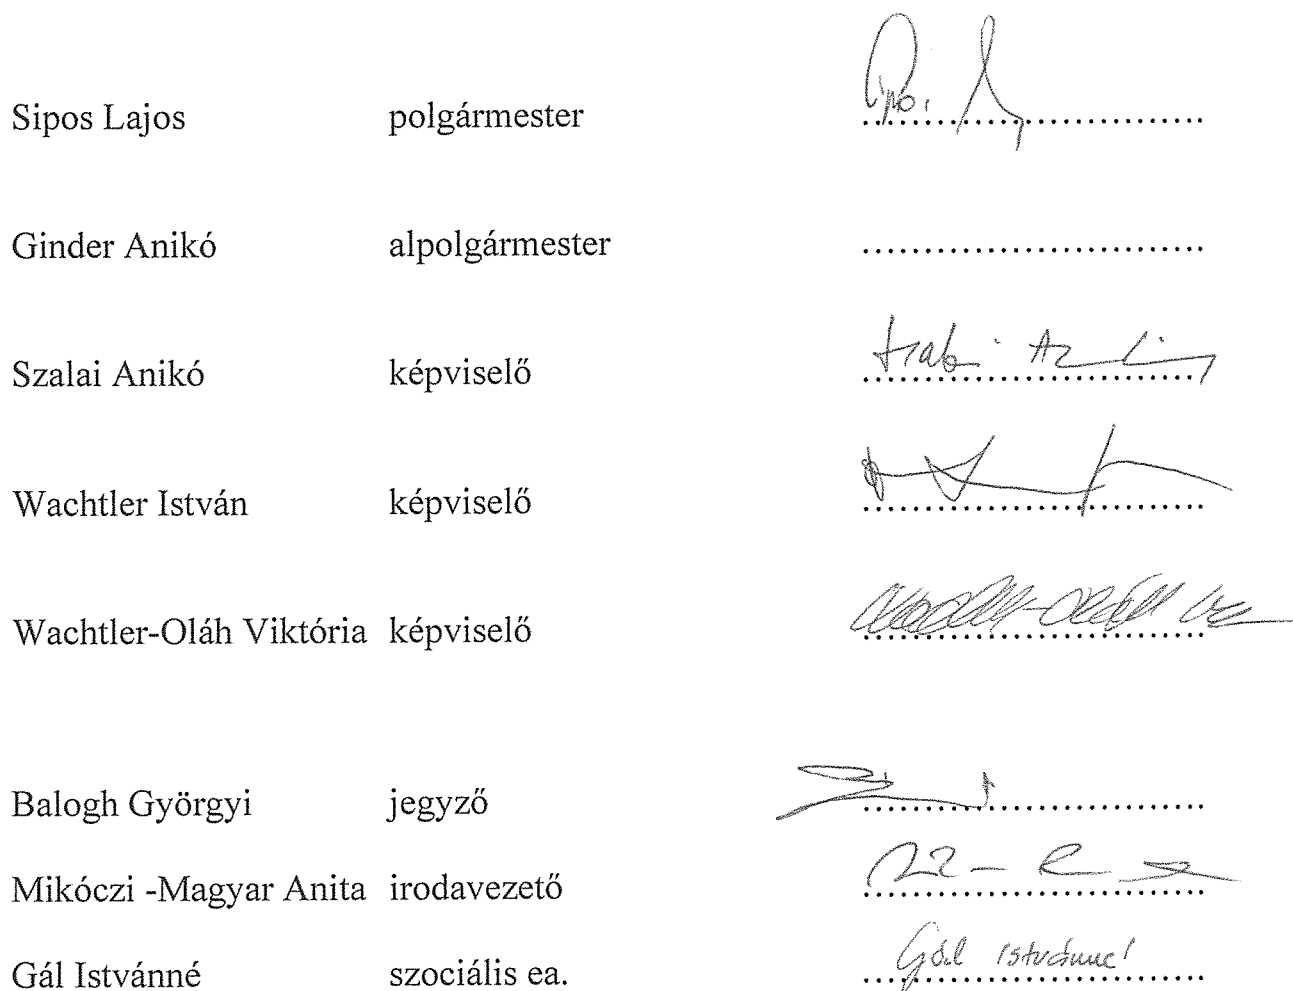 Sipos Lajos polgármester ..................................
Ginder Anikó alpolgármester ..................................
Szalai Anikó képviselő ..................................
Wachtler István képviselő ..................................
Wachtler-Oláh Viktória képviselő ..................................
Balogh Györgyi jegyző ..................................
Mikóczi -Magyar Anita irodavezető ..................................
Gál Istvánné szociális ea. Gál Istvánné